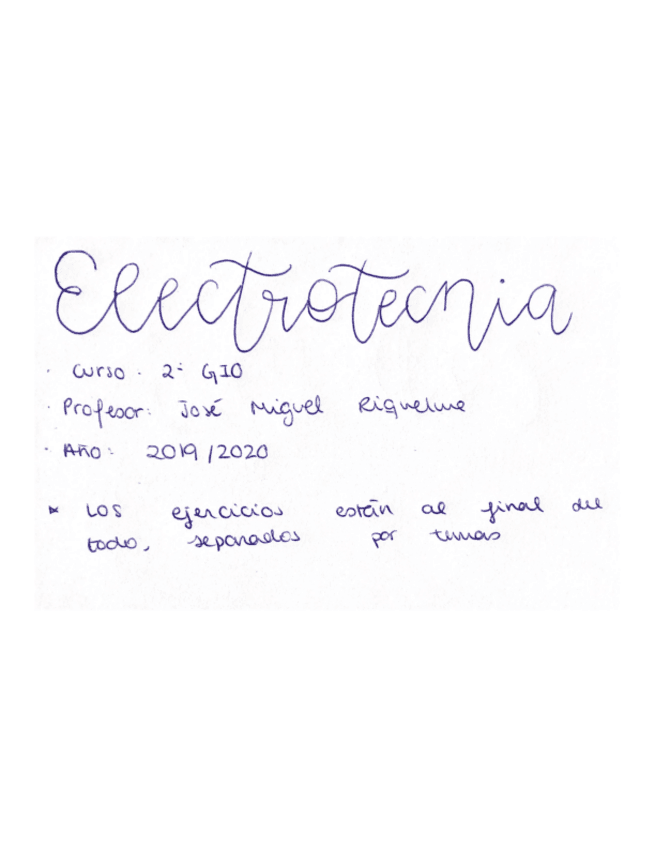 Electrotecnia
· Curso · 2º GIO
· Profesor: José Miguel Riquelme
· Año: 2019/2020
* Los ejercicios están al final del
todo, separados por temas